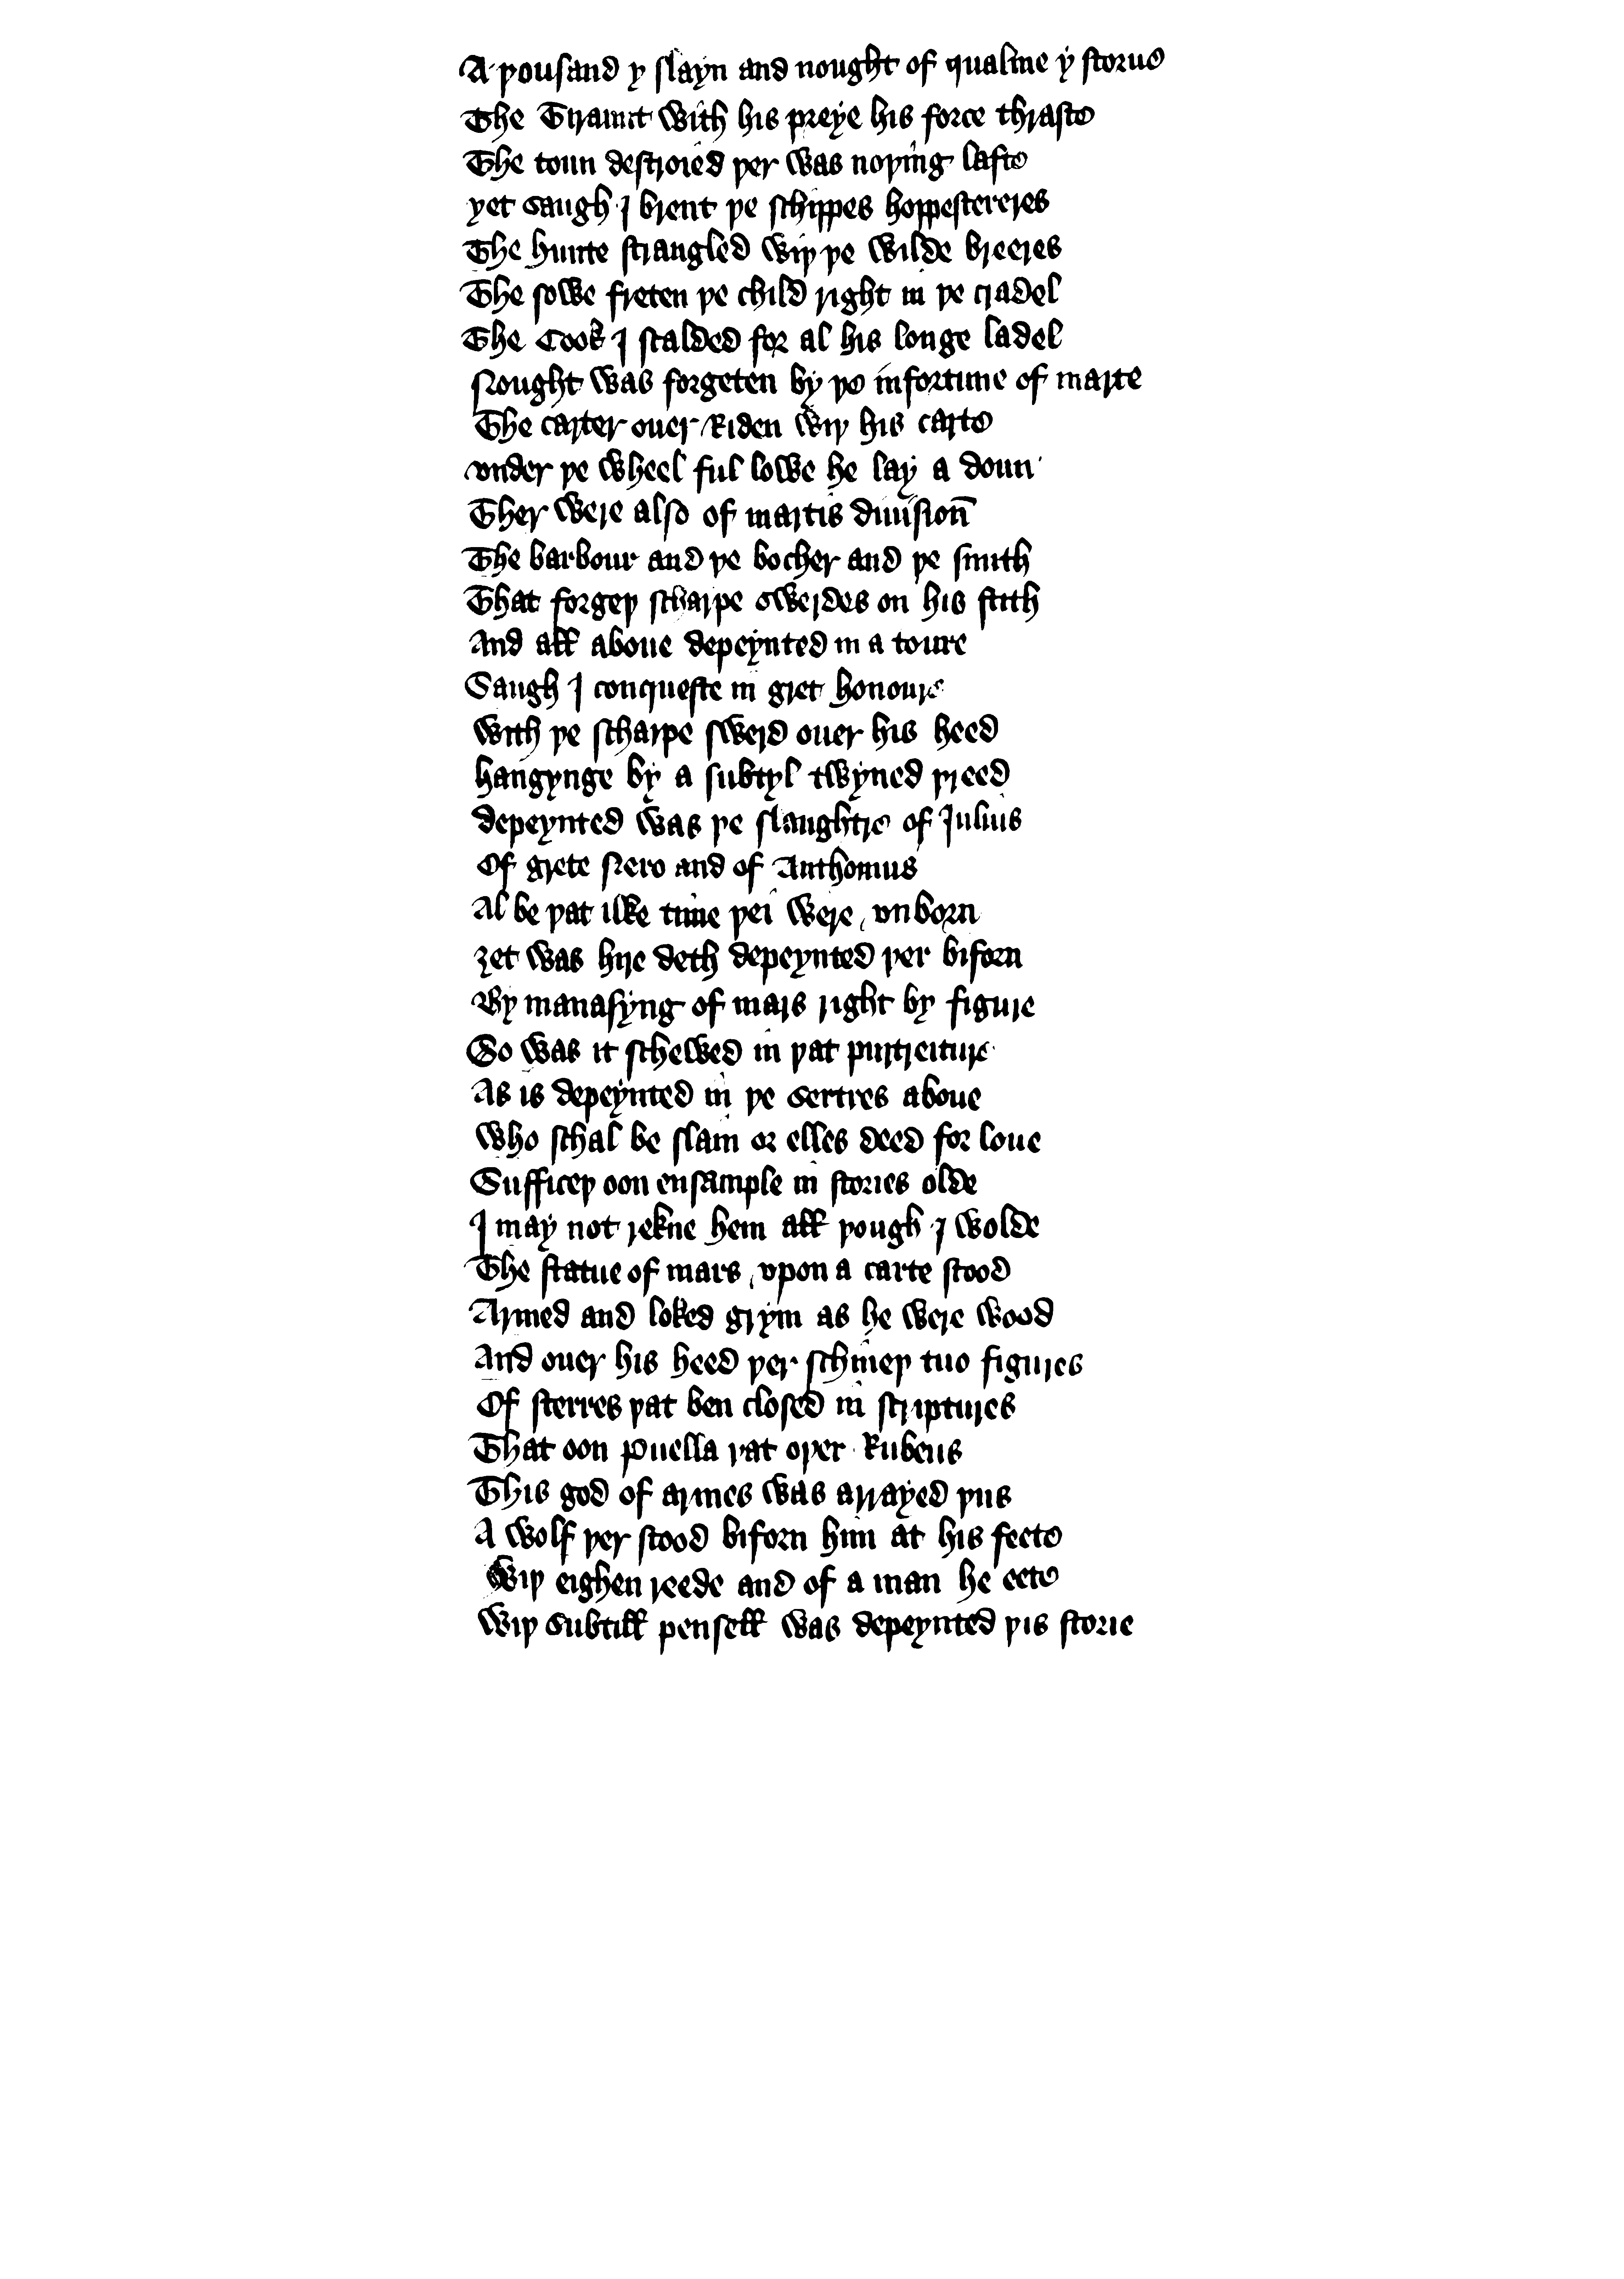 A þousand y slayn and nought of qualme y storue
The Tiraunt with his preye his force thraste
The toun destroied þer was noþing lafte
yet saugh I brent þe schippes hoppesteres
The hunte strangled wiþ þe wilde breeres
The sowe freten þe child right in þe cradel
The Cook I scalded for al his longe ladel
Nought was forgeten by þe infortune of marte
The carter ouer Riden wiþ his carte
vnder þe wheel ful lowe he lay a doun
Ther were also of martis diuisioñ
The barbour and þe bocher and þe smith
That forgeþ scharpe swerdes on his stith
And all aboue depeynted in a toure
Saugh I conqueste in gret honoure
with þe scharpe swerd ouer his heed
hangynge by a subtyl twyned þreed
depeynted was þe slaughtre of Julius
Of grete Nero and of Anthonius
Al be þat ilke time þei were vnborn
ȝet was hire deth depeynted þer biforn
By manasyng of mars right by figure
So was it schewed in þat purtreiture
As is depeynted in þe sertres aboue
who schal be slain or elles deed for loue
Sufficeþ oon ensample in stories olde
I may not rekne hem all þough I wolde
The statue of mars vpon a carte stood
Armed and loked grym as he were wood
And ouer his heed þer schineþ tuo figures
Of sterres þat ben closed in scriptures
That oon Puella þat oþer Rubeus
This god of armes was arrayed þus
A wolf þer stood biforn him at his feete
Wiþ eighen reede and of a man he eete
Wiþ subtill pensell was depeynted þis storie